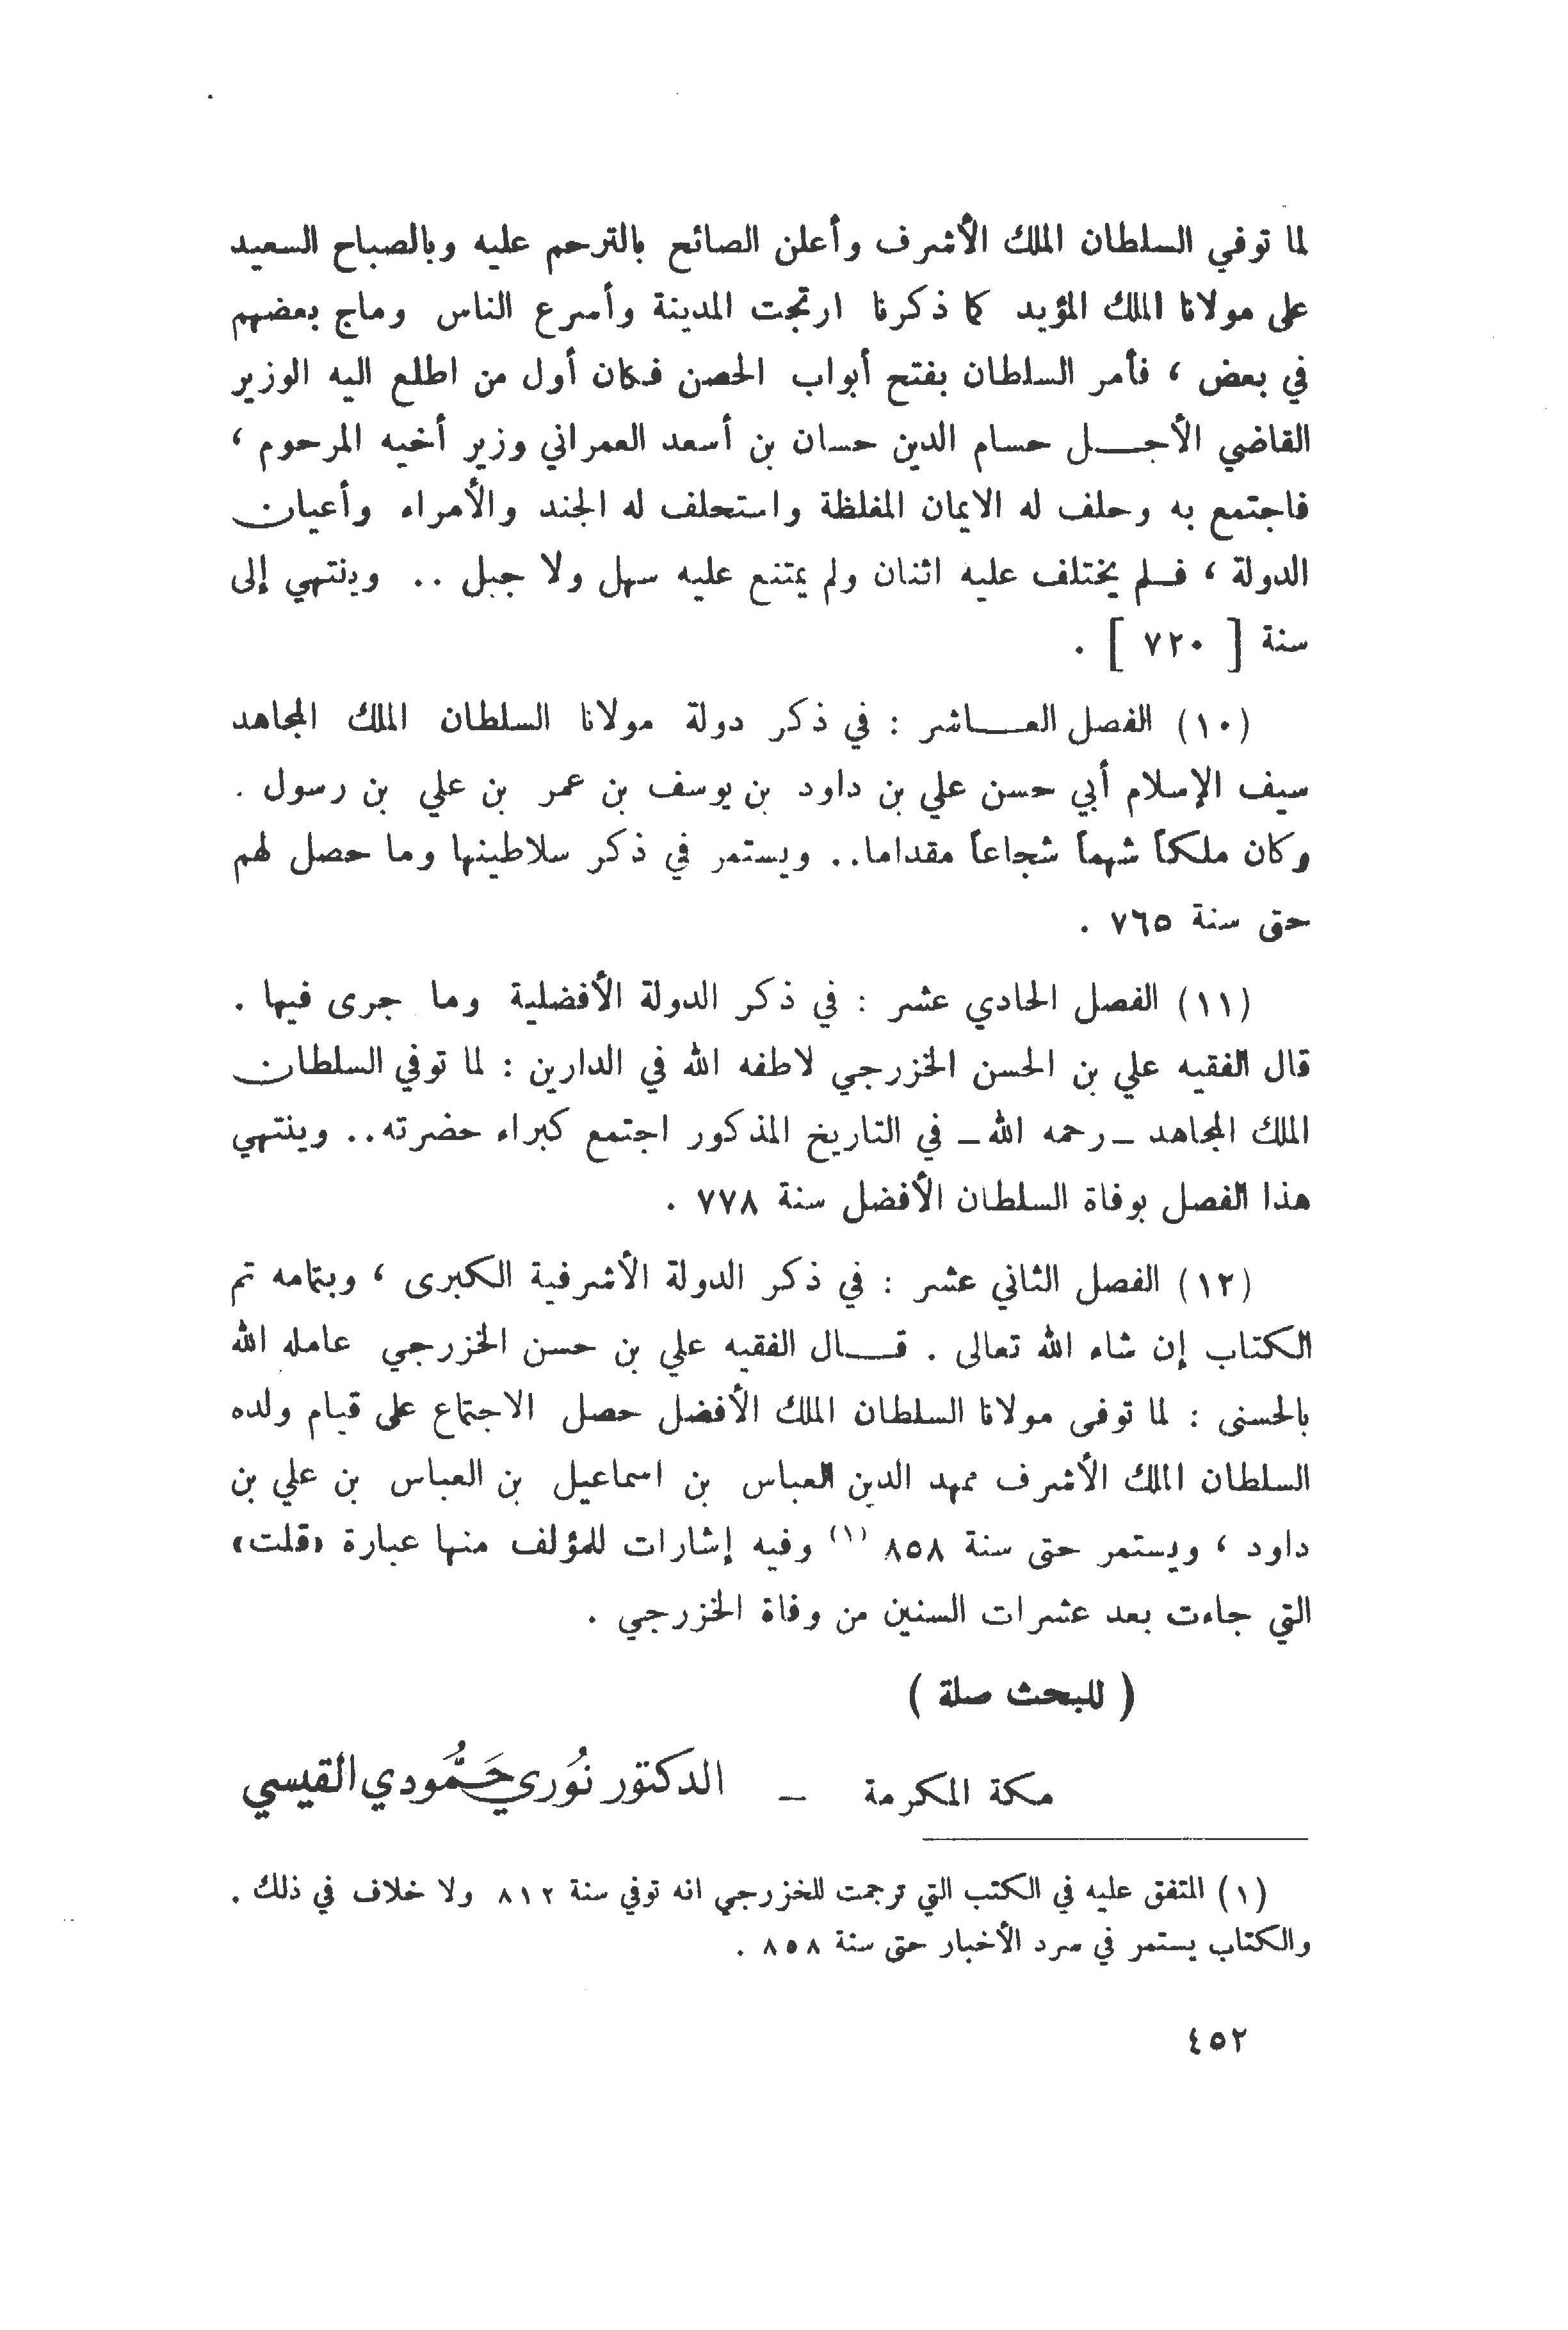 لما توفي السلطان الملك الأشرف وأعلن الصائح بالترحم عليه وبالصباح السعيد
على مولانا الملك المؤيد كما ذكرنا ارتجت المدينة وأسرع الناس وماج بعضهم
في بعض ، فأمر السلطان بفتح أبواب الحصن فكان أول من اطلع اليه الوزير
القاضي الأجل حسام الدين حسان بن أسعد العمراني وزير أخيه المرحوم ،
فاجتمع به وحلف له الايمان المغلظة واستحلف له الجند والأمراء وأعيان
الدولة ، فلم يختلف عليه اثنان ولم يمتنع عليه سهل ولا جبل .. وينتهي إلى
سنة [ ٧٢٠ ] .
(١٠) الفصل العاشر : في ذكر دولة مولانا السلطان الملك المجاهد
سيف الإسلام أبي حسن علي بن داود بن يوسف بن عمر بن علي بن رسول .
وكان ملكاً شهماً شجاعاً مقداما.. ويستمر في ذكر سلاطينها وما حصل لهم
حتى سنة ٧٦٥ .
(١١) الفصل الحادي عشر : في ذكر الدولة الأفضلية وما جرى فيها .
قال الفقيه علي بن الحسن الخزرجي لاطفه الله في الدارين : لما توفي السلطان
الملك المجاهد – رحمه الله – في التاريخ المذكور اجتمع كبراء حضرته.. وينتهي
هذا الفصل بوفاة السلطان الأفضل سنة ٧٧٨ .
(١٢) الفصل الثاني عشر : في ذكر الدولة الأشرفية الكبرى ، وبتمامه تم
الكتاب إن شاء الله تعالى . قال الفقيه علي بن حسن الخزرجي عامله الله
بالحسنى : لما توفى مولانا السلطان الملك الأفضل حصل الاجتماع على قيام ولده
السلطان الملك الأشرف ممهد الدين العباس بن اسماعيل بن العباس بن علي بن
داود ، ويستمر حتى سنة ٨٥٨ (١) وفيه إشارات للمؤلف منها عبارة «قلت»
التي جاءت بعد عشرات السنين من وفاة الخزرجي .
( للبحث صلة )
مكة المكرمة – الدكتور نوُري حَمُّودي القيسي
(١) المتفق عليه في الكتب التي ترجمت للخزرجي انه توفي سنة ٨١٢ ولا خلاف في ذلك .
والكتاب يستمر في سرد الأخبار حتى سنة ٨٥٨ .
٤٥٢